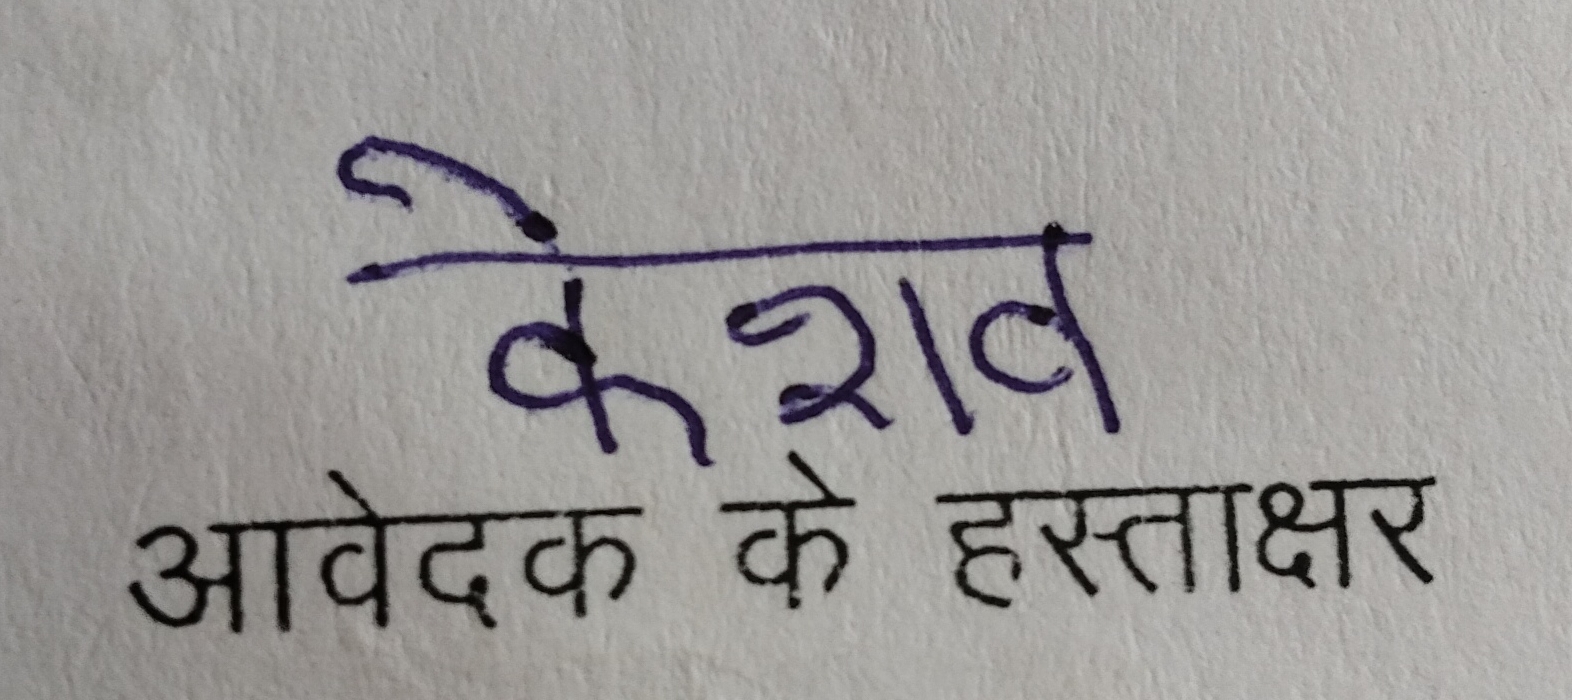 केशव
आवेदक के हस्ताक्षर